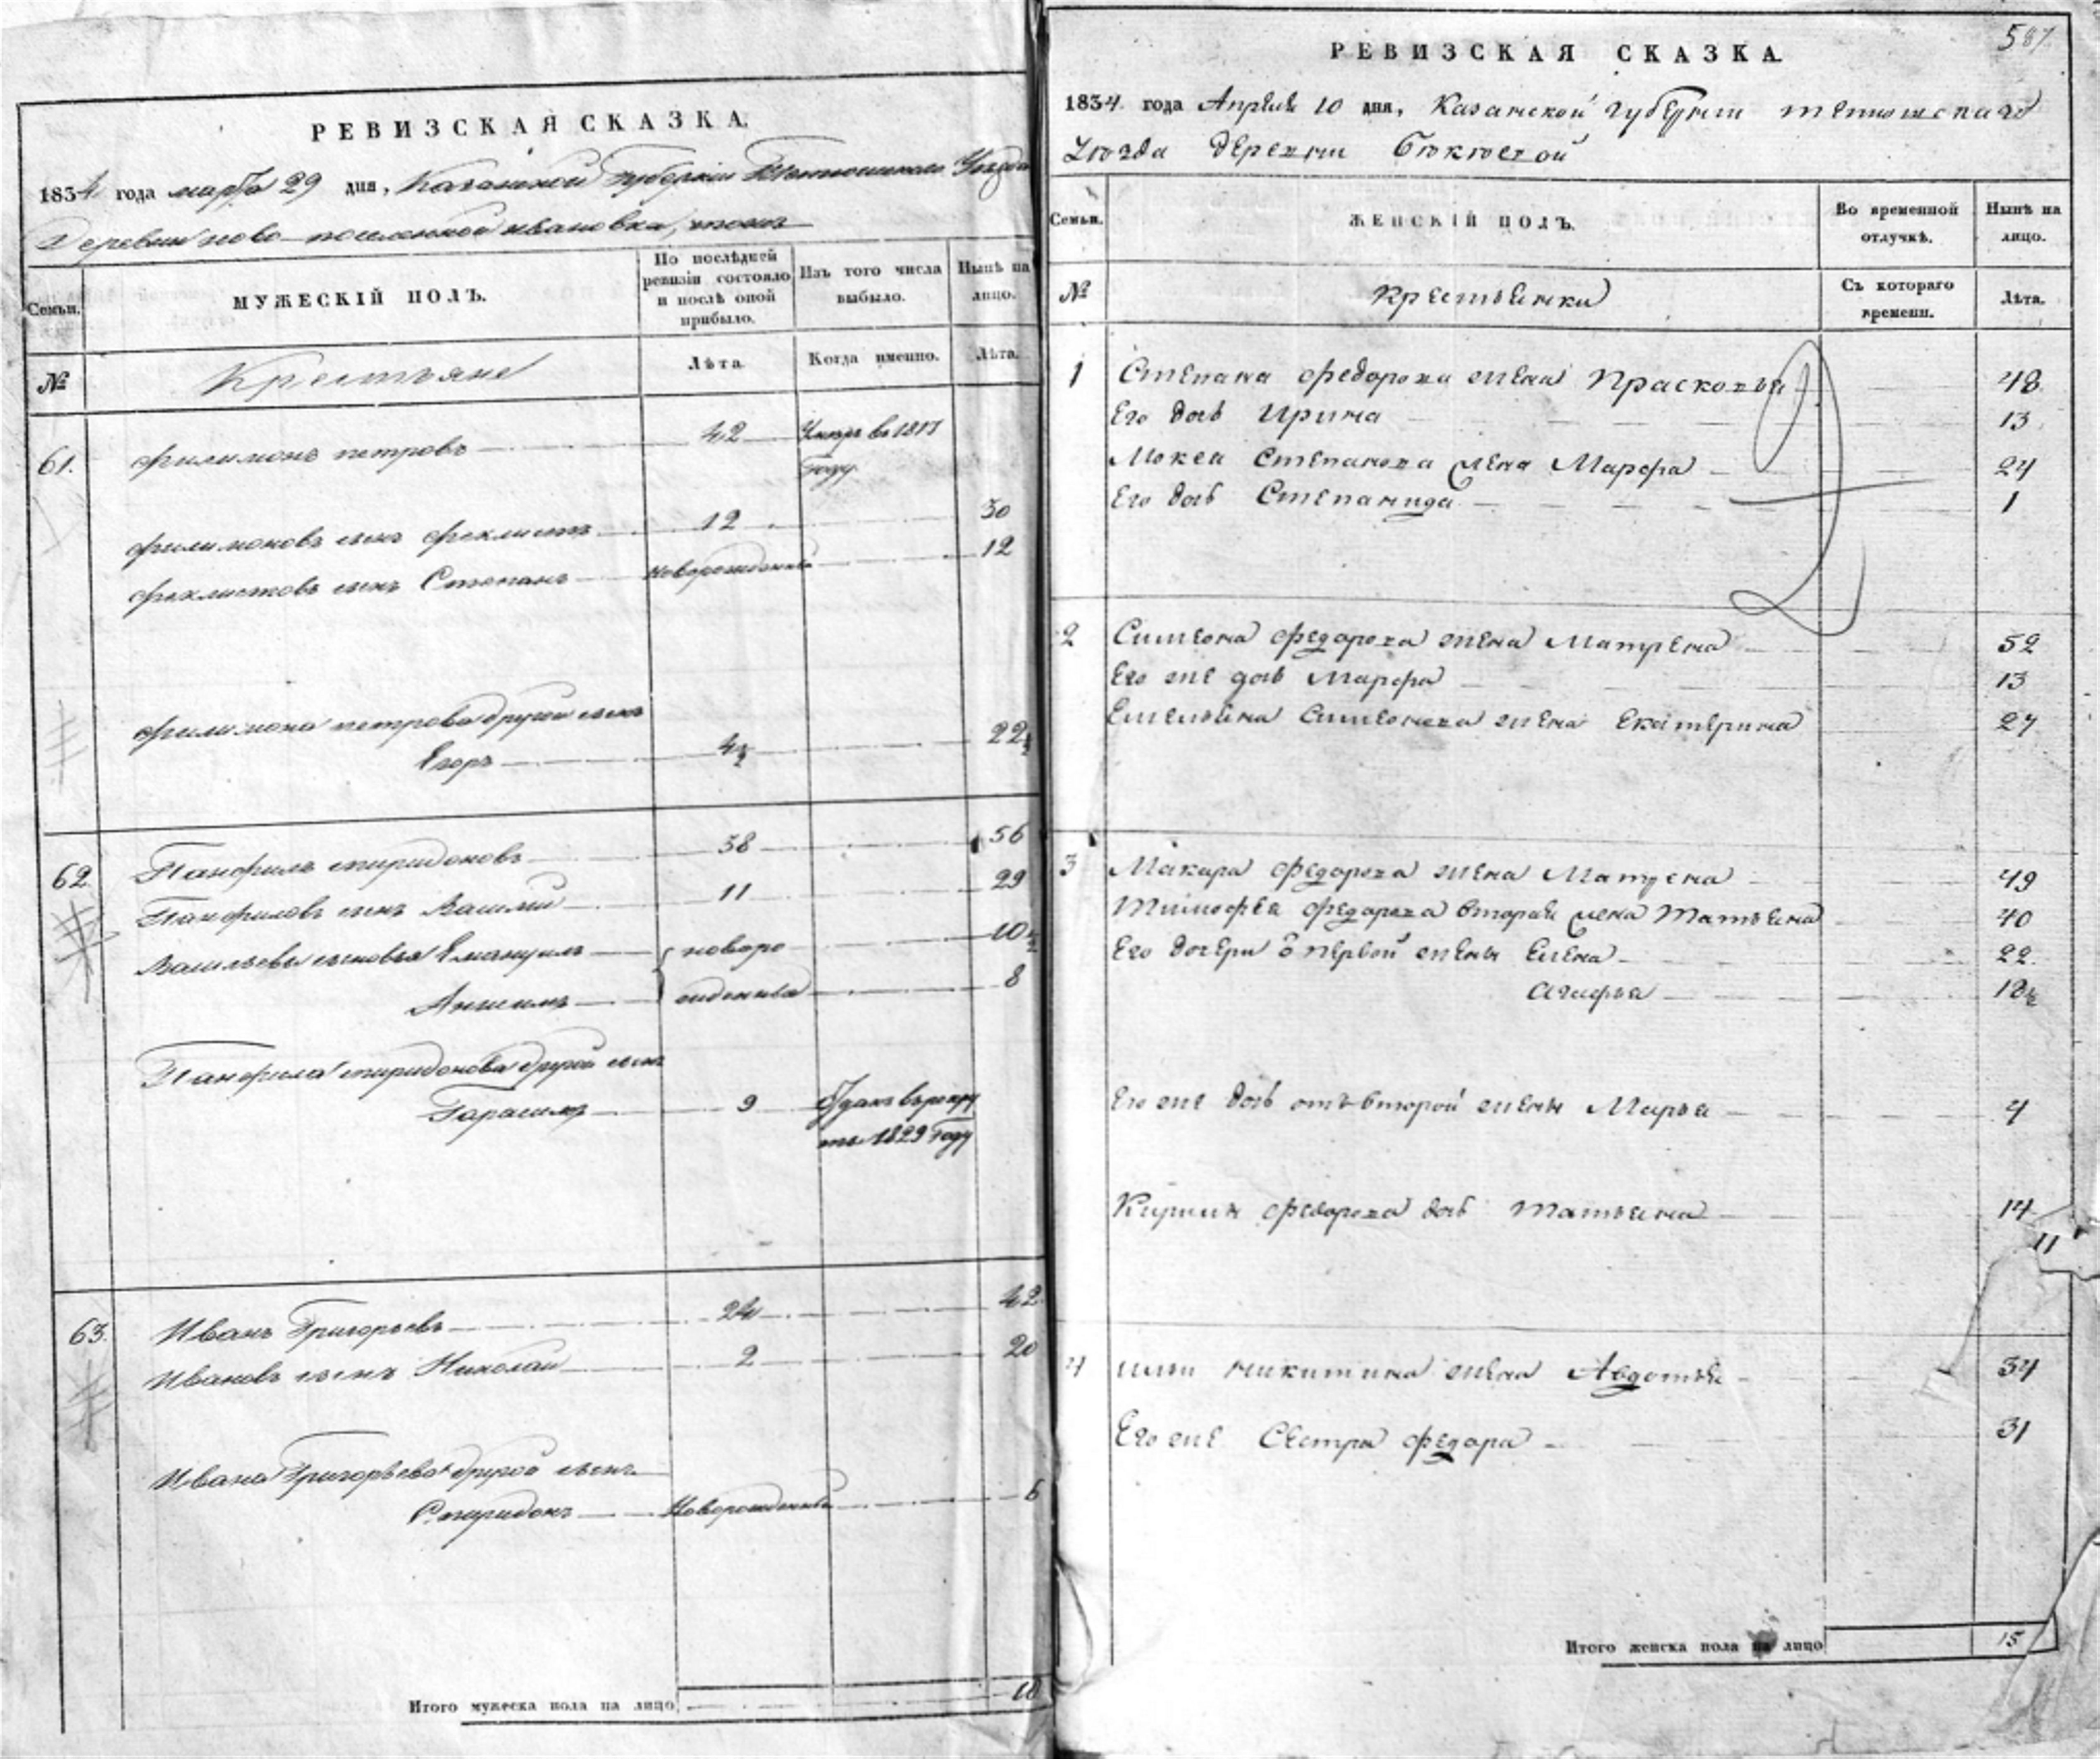 РЕВИЗСКАЯ СКАЗКА.
1834 года марта 29 дня, Казанской Губернии Тетюшскаго Уѣзда
Деревни ново-поселенной ивановка, тожъ
Семьи.
МУЖЕСКІЙ ПОЛЪ.
По послѣдней ревизіи состояло и послѣ оной прибыло.
Изъ того числа выбыло.
Нынѣ на лицо.
№
Крестьяне
Лѣта.
Когда именно.
Лѣта.
61. Филимонъ петровъ 42 Умеръ въ 1817
году
филимоновъ сынъ феклистъ 12 30
феклистовъ сынъ Степанъ новорожденный 12
филимона петрова другой сынъ
Егоръ 4½ 22½
62. Панфилъ спиридоновъ 38 56
Панфиловъ сынъ Василий 11 29
Васильевы сыновья Емануилъ новоро 10½
Анисимъ жденныя 8
Панфила спиридонова другой сынъ
Гарасимъ 9 Отданъ в рекру
ты 1829 году
63. Иванъ Григорьевъ 24 42
Ивановъ сынъ Николай 2 20
Ивана Григорьева другой сынъ
Спиридонъ Новорожденный 6
Итого мужеска пола на лицо 10
587.
РЕВИЗСКАЯ СКАЗКА.
1834 года Апреля 10 дня, Казанской губернии тетюшскаго
Уюзда деревни Бюкювой
Семьи.
ЖЕНСКІЙ ПОЛЪ.
Во временной отлучкѣ.
Нынѣ на лицо.
№
Крестьянки
Съ котораго времени.
Лѣта.
1 Степана федорова жена Прасковья 48
Его дочь Ирина 13
Мокея Степанова жена Марфа 24
Его дочь Степанида 1
2 Симеона федорова жена Матрена 52
Его же дочь Марфа 13
Емельяна Симеонова жена Екатерина 27
3 Макара федорова жена Матрена 49
Тимофея федорова вторая жена Татьяна 40
Его дочери о первой жены Елена 22
Агафья 18½
Его же дочь отъ второй жены Марья 4
Кирилы федорова дочь Татьяна 14
11
4 ильи никитина жена Авдотья 34
Его же Сестра федора 31
Итого женска пола на лицо 15